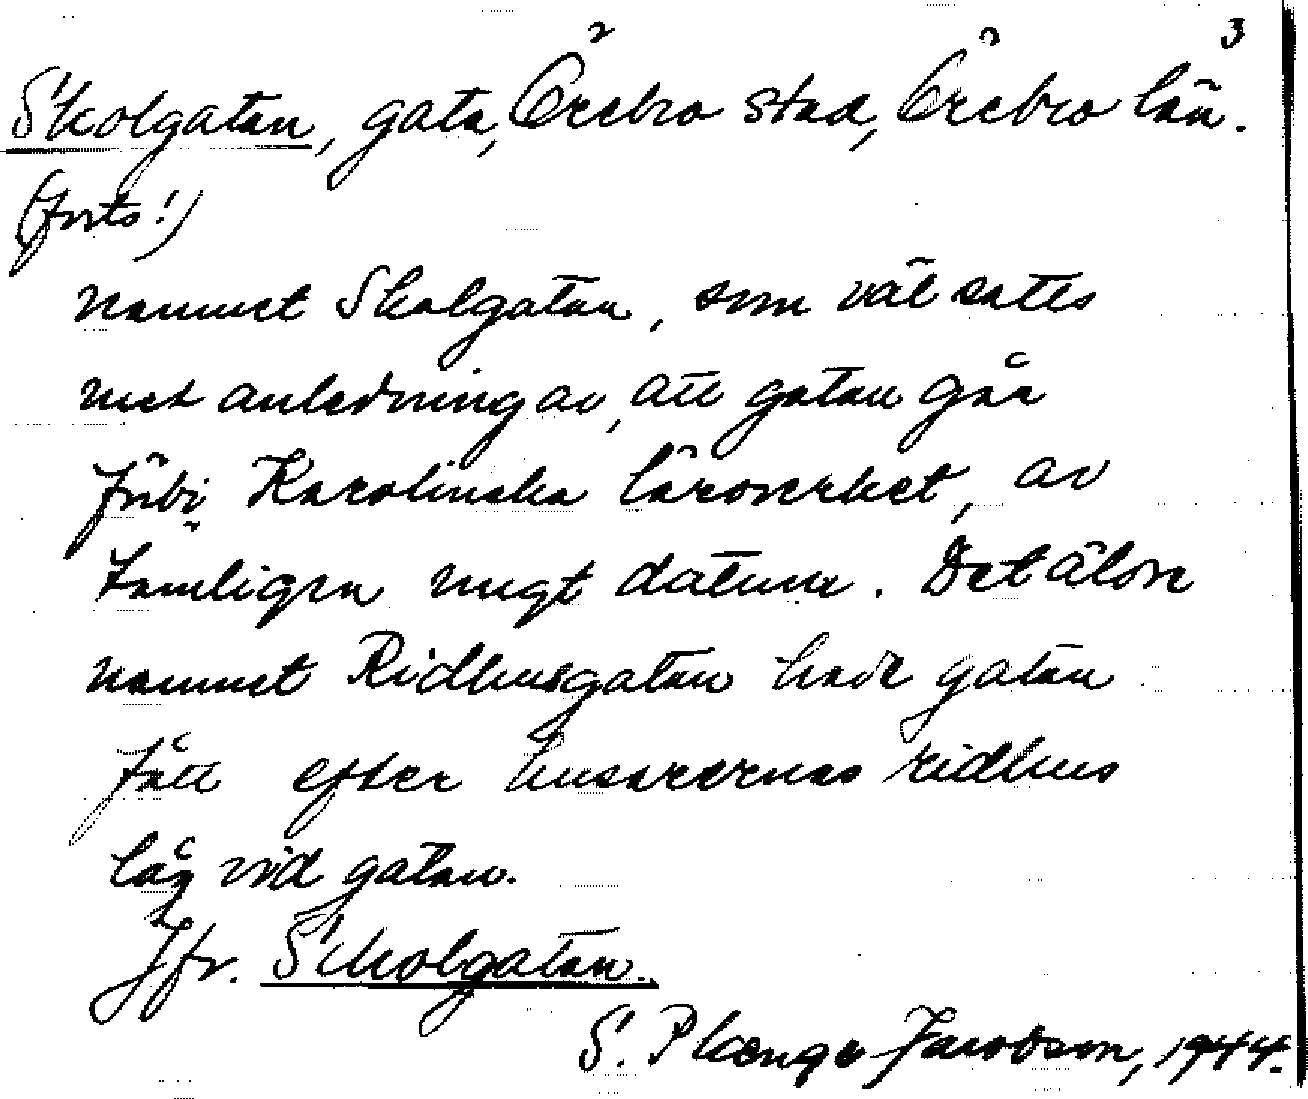 3
Skolgatan, gata, Örebro stad, Örebro län.
(forts!)
namnet Skolgatan, som väl sattes
med anledning av, att gatan går
förbi Karolinska läroverket, av
tämligen ungt datum. Det äldre
namnet Ridhusgatan hade gatan
fått efter husarernas ridhus
låg vid gatan.
Jfr. Skolgatan.
S. Plænge Jacobson, 1944.